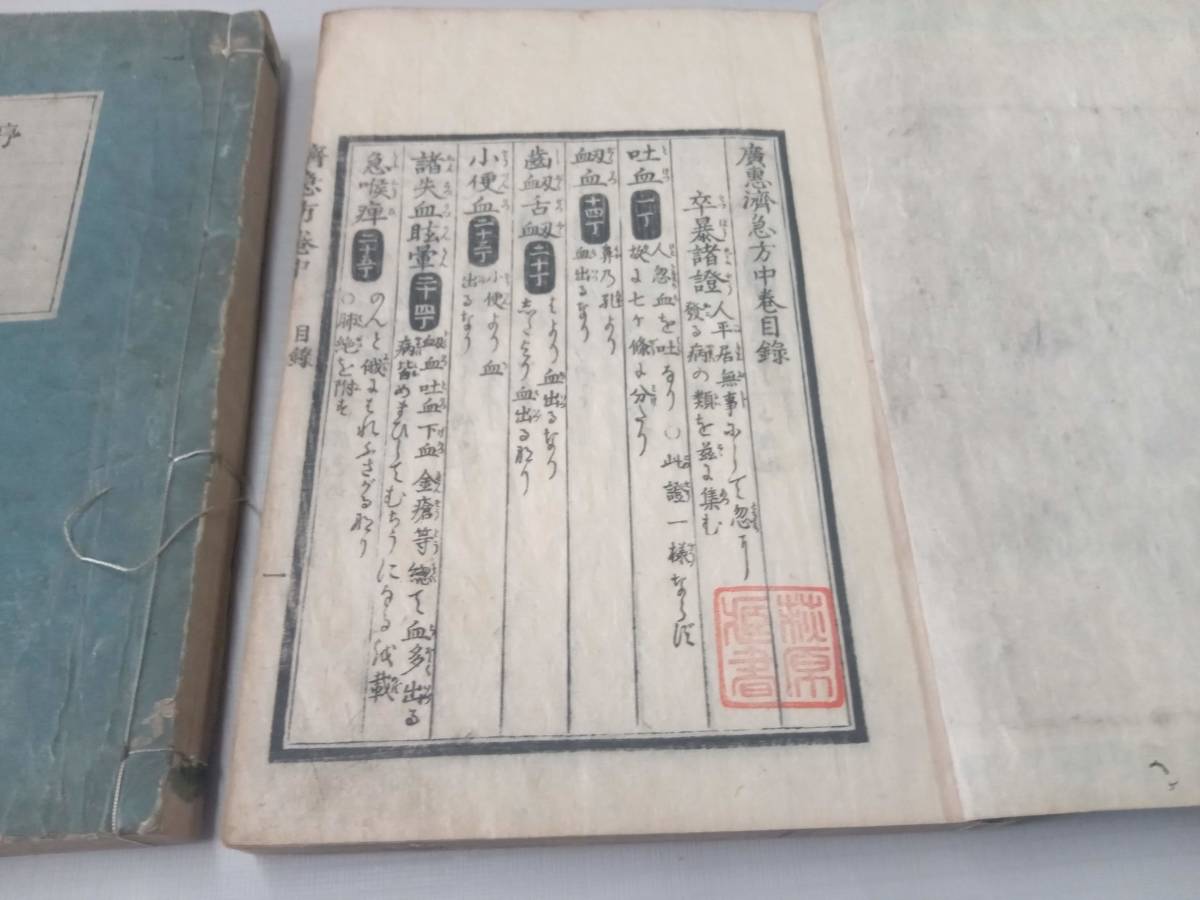 廣惠濟急方中卷目錄
卒暴諸證 人平居無事にして忽に
發る病の類を茲に集む
吐血 一丁 人忽血を吐なり ○此證一樣ならず
故に七ケ條に分たり
衂血 十四丁 鼻乃孔より
血出るなり
齒衂舌衂 二十丁 はより血出るなり
志たより血出る形り
小便血 二十三丁 小便より血
出るなり
諸失血眩暈 二十四丁 衂血吐血下血金瘡等總て血多出る
病皆めまひしてむちうになる故載
急喉痺 二十五丁 のんと俄にはれふさがる形り
○肺絶を附す
濟急方 卷中 目錄
一
萩原
藏書
序